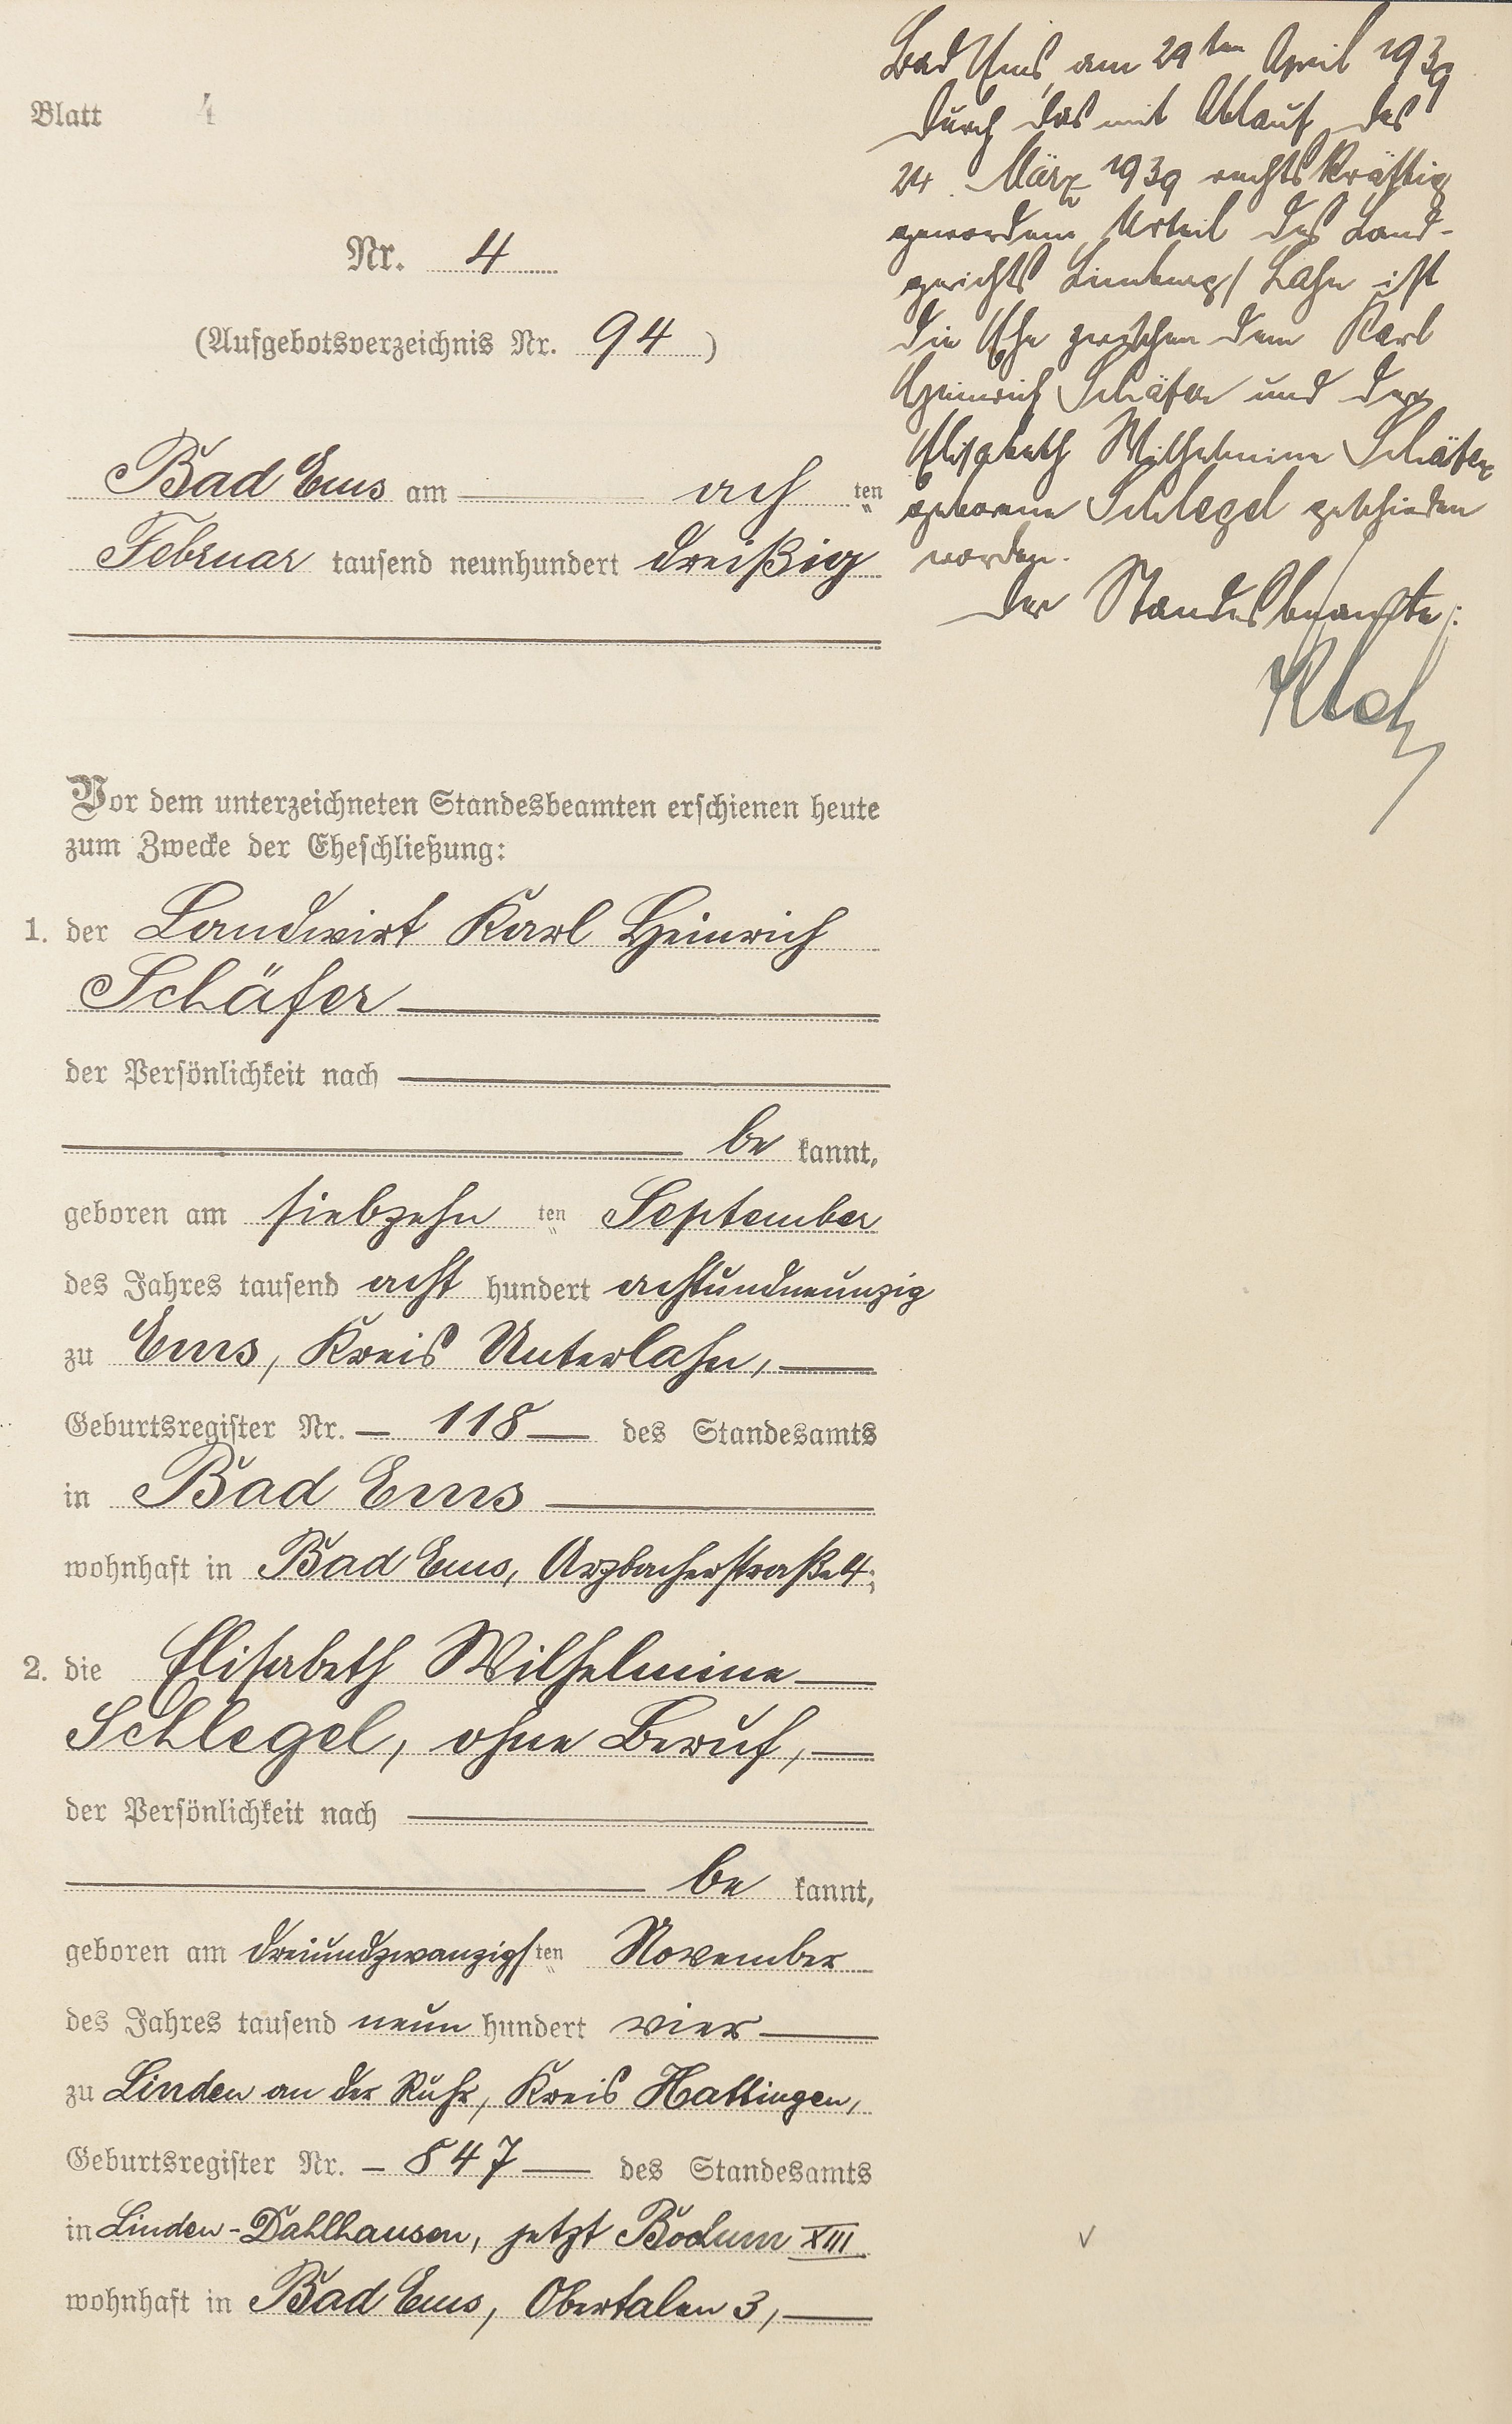 Blatt 4
Nr. 4
(Aufgebotsverzeichnis Nr. 94)
Bad Ems am ach ten
Februar tausend neunhundert dreißig
Vor dem unterzeichneten Standesbeamten erschienen heute
zum Zwecke der Eheschließung:
1. der Landwirt Karl Heinrich
Schäfer
der Persönlichkeit nach
be kannt,
geboren am siebzehn ten September
des Jahres tausend acht hundert achtundneunzig
zu Ems, Kreis Unterlahn,
Geburtsregister Nr. 118 des Standesamts
in Bad Ems
wohnhaft in Bad Ems, Arzbacherstraße 4;
2. die Elisabeth Wilhelmine
Schlegel, ohne Beruf,
der Persönlichkeit nach
be kannt,
geboren am dreiundzwanzigsten November
des Jahres tausend neun hundert vier
zu Linden an der Ruhr, Kreis Hattingen,
Geburtsregister Nr. 847 des Standesamts
in Linden-Dahlhausen, jetzt Bochum XIII
wohnhaft in Bad Ems, Obertalen 3,
Bad Ems, am 29ten April 1939
Durch das mit Ablauf des
24. März 1939 rechtskräftig
gewordene Urteil des Land-
gerichts Limburg/Lahn ist
die Ehe zwischen dem Karl
Heinrich Schäfer und der
Elisabeth Wilhelmine Schäfer
geborene Schlegel geschieden
worden.
Der Standesbeamte: